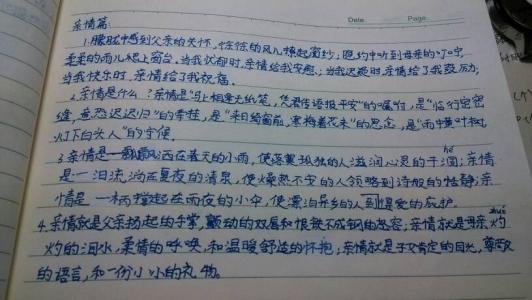 Date    Page
亲情篇
1.朦胧中感到父亲的关怀,恰恰的风儿撩起窗纱;隐约中听到母亲的叮咛,
柔柔的雨儿爬上窗台,当我忧郁时,亲情给我安慰;当我迟疑时,亲情给了我鼓励;
当我快乐时,亲情给了我祝福。
2.亲情是什么?亲情是"马上相逢无纸笔,凭君传语报平安"的嘱咐,是"临行密密
缝,意恐迟迟归"的牵挂,是"来日绮窗前,寒梅着花未"的思念,是"雨中黄叶树,
灯下白头人"的守候。
3.亲情是一飘飘洒在春天的小雨,使落寞孤独的人滋润心灵的干涸hé;亲情
是一泪流淌在夏夜的清泉,使燥热不安的人领略到诗般的恬静;亲
情是一柄撑起在雨夜的小伞,使漂泊异乡的人得到爱的庇护。
4.亲情就是父亲扬起的手掌,颤动的双唇和恨铁不成钢的怒容;亲情就是母亲灼zhuó
灼的泪水,柔情的呼唤,和温暖舒适的怀抱;亲情就是子女肯定的目光,尊敬
的语言,和一份小小的礼物。